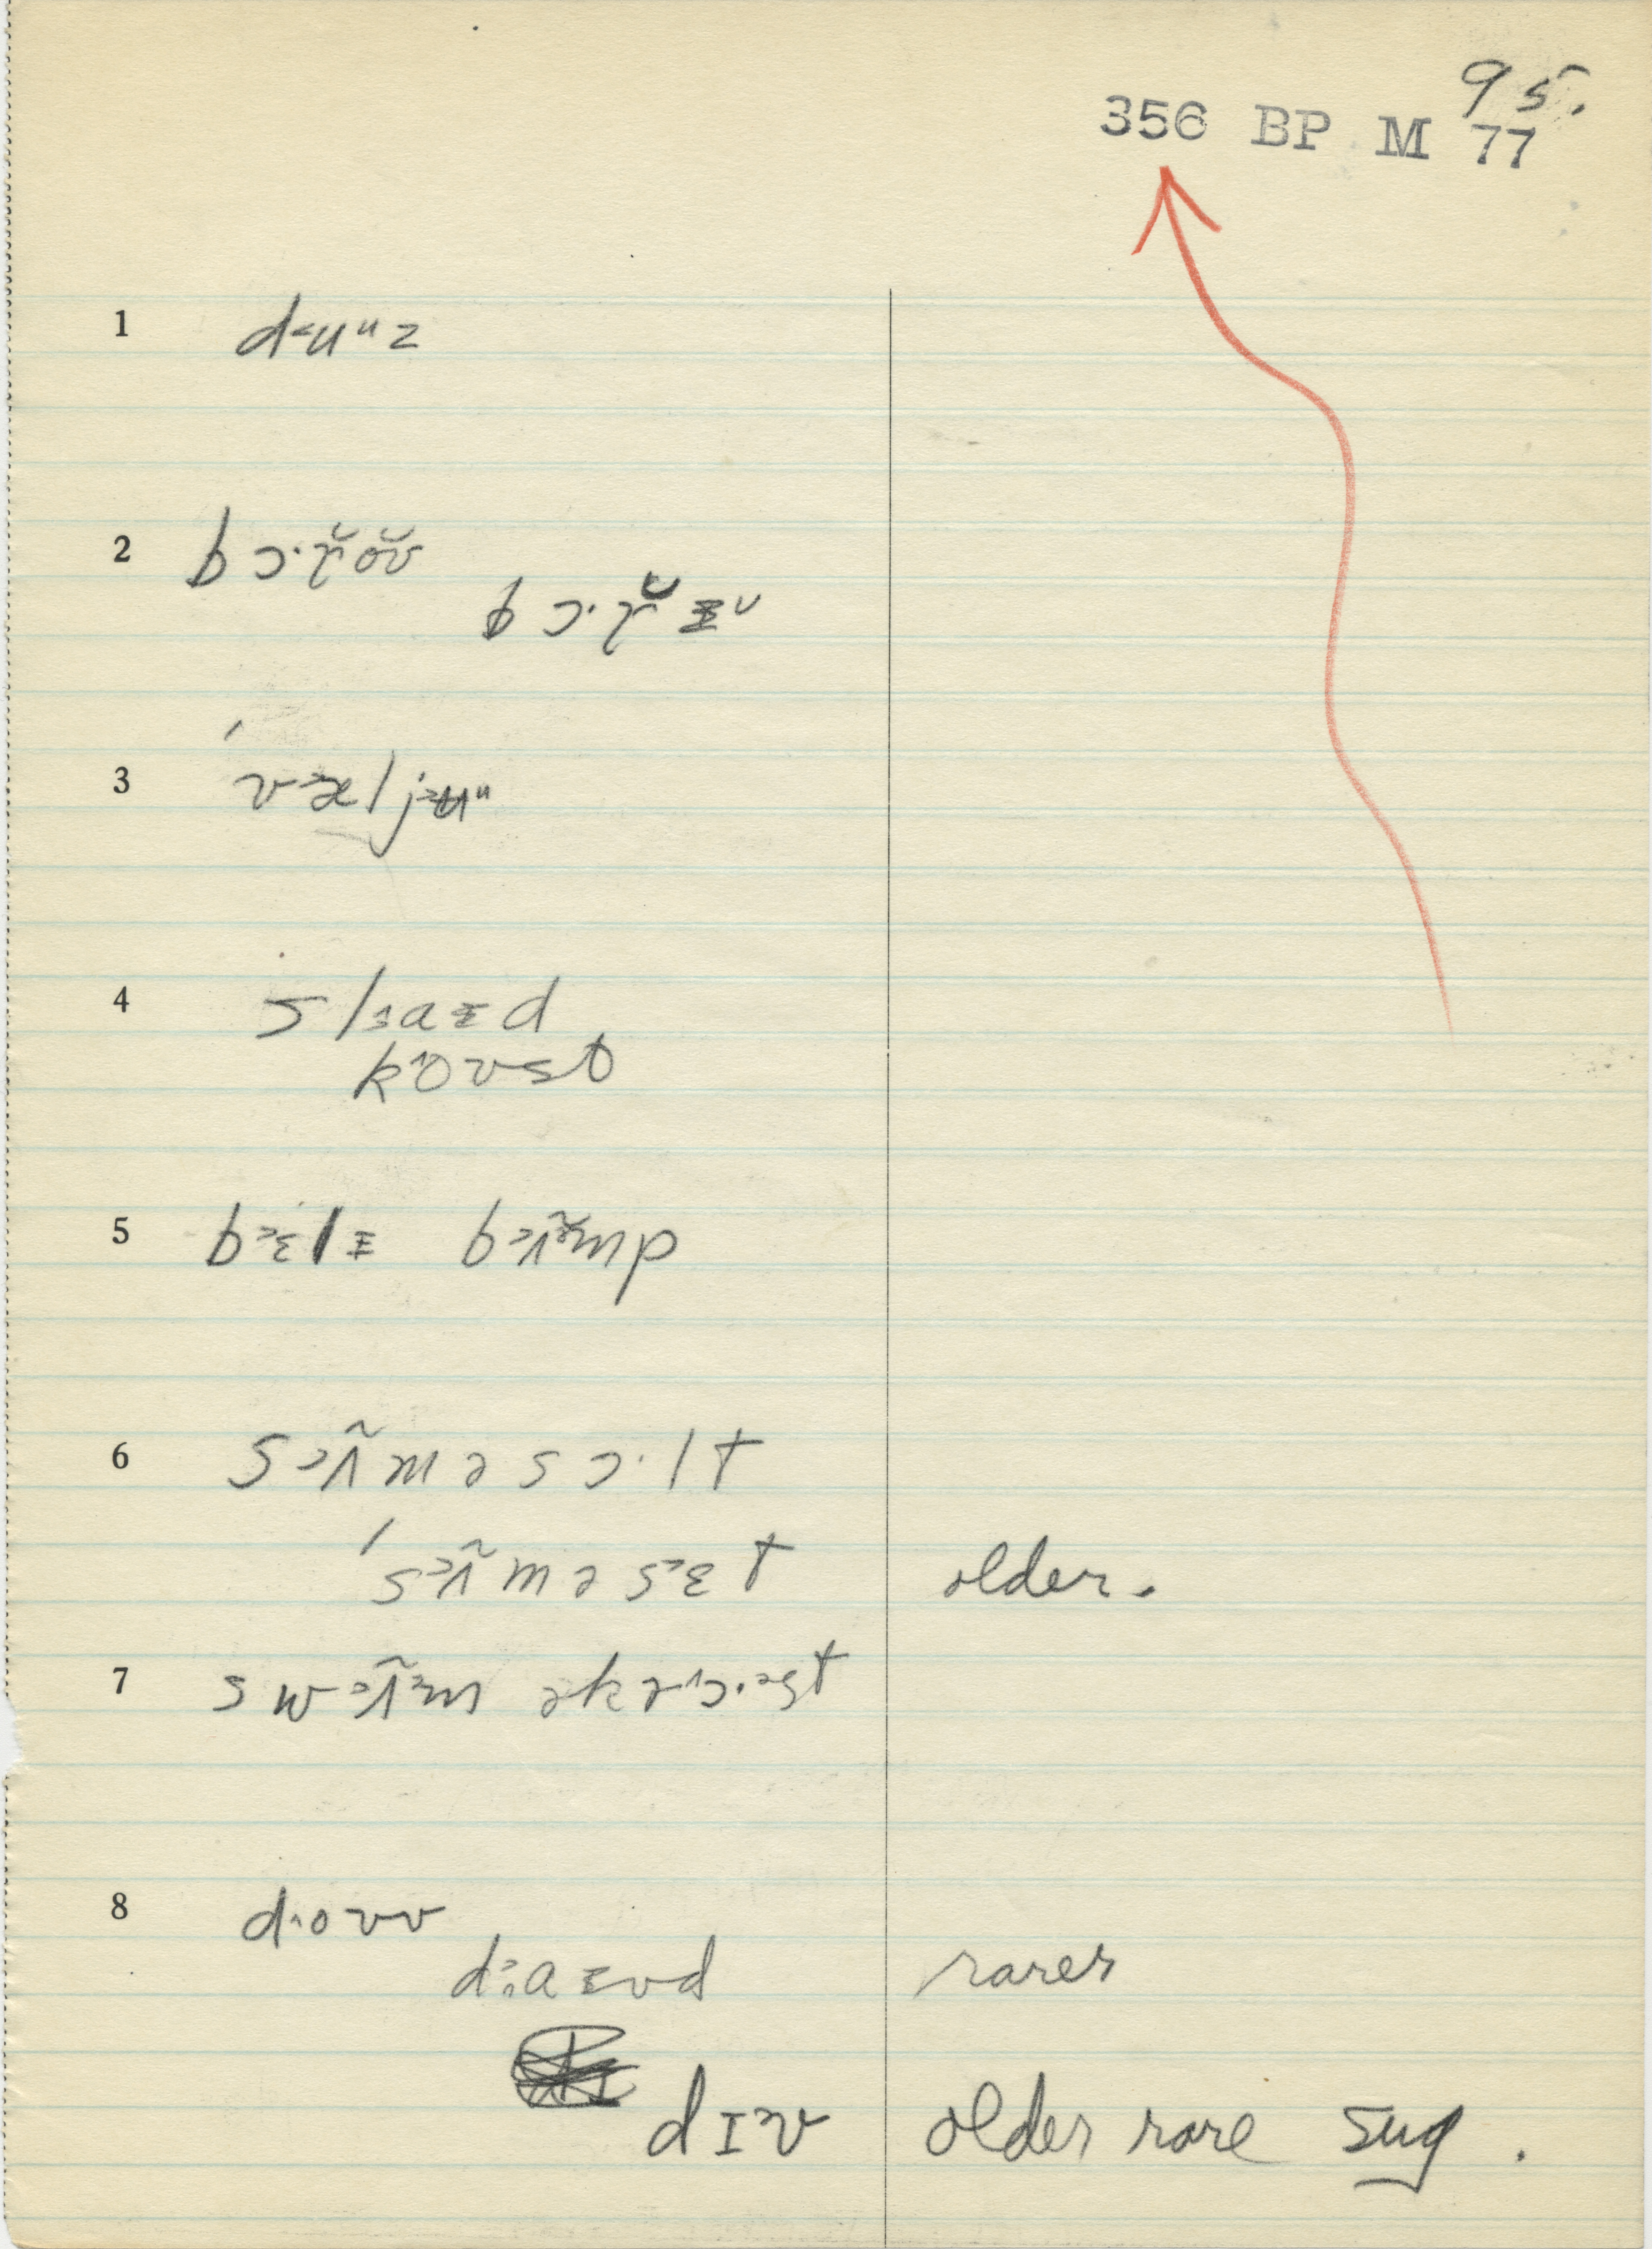 95.
356 BP M 77
1 d˂uᵘz
2 bɔ·ɽ̆ŏv
bɔ·ɽ̆ɪᵕ
3 ˈv˃æljʉᵘ
4 slaɪd
ko^vst
5 b˃ɛlɪ b˃ʌ̃mp
6 s˃ʌ̃məsɔ·lt
ˈs˃ʌ̃məs˃ɛt older.
7 sw˃ʌ̃m əkrɔ·əst
8 d˄oʊv
daɪvd rarer
dɪv older rare sug.